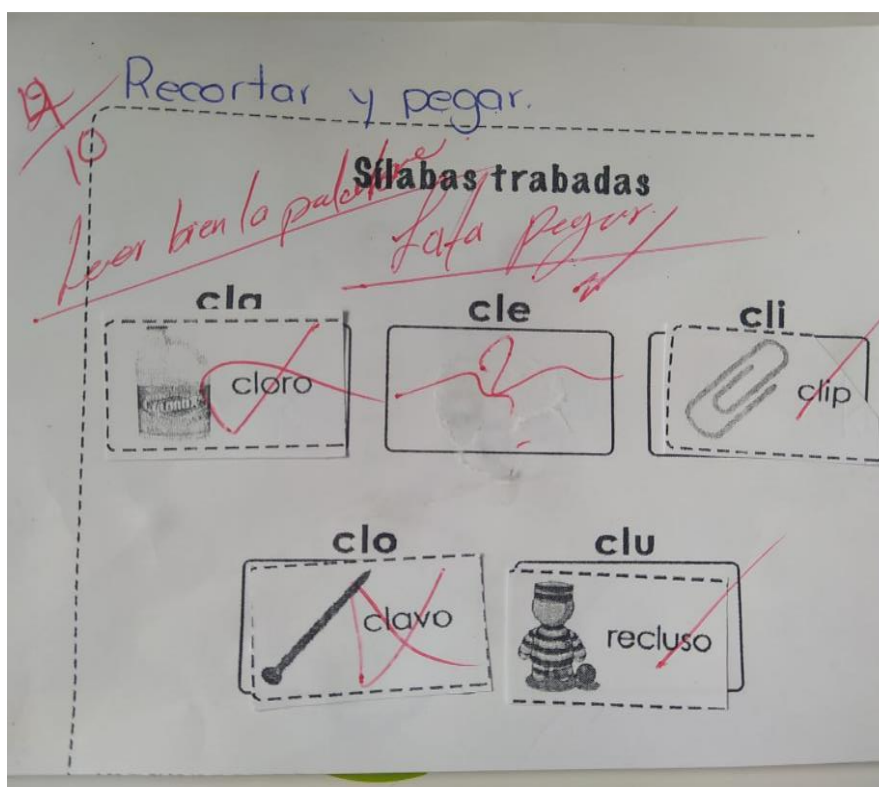 Recortar y pegar.
10
Sílabas trabadas
Leer bien la palabra
fata pegar.
cla
cle
cli
cloro
clip
clo
clu
clavo
recluso